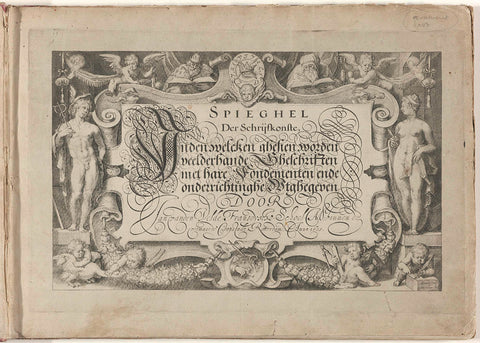 SPIEGHEL
Der Schrijfkonste,
In den welcken ghesien worden
veelderhande Gheschriften
met hare Fondementen ende
onderrichtinghe Wtghegeven
DOOR
Jan vanden Velde
Rotterdam